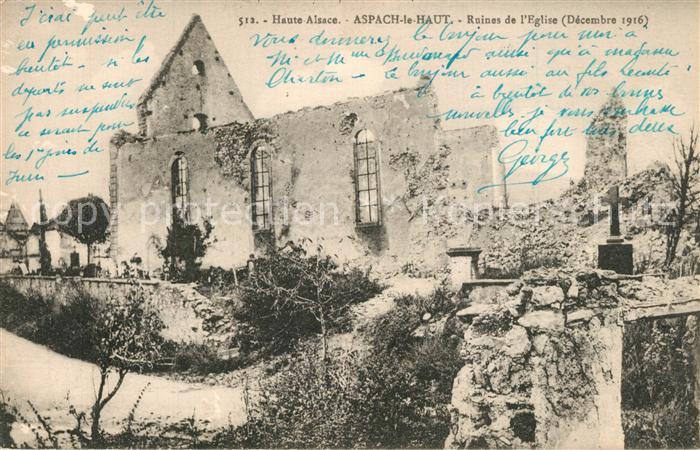 512. - Haute-Alsace. - ASPACH-le-HAUT. - Ruines de l'Eglise (Décembre 1916)
J'irai peut être
en permission
bientôt - si les
départs ne sont
pas suspendus
ce serait pour
les 1ers jours de
Juin -
Vous donnerez le bonjour pour moi à
Mr et Mme ainsi qu'à madame
Charton - le bonjour aussi au fils
à bientôt de vos bonnes
nouvelles, je vous embrasse
bien fort tous deux
Georges
copyright protection copyright